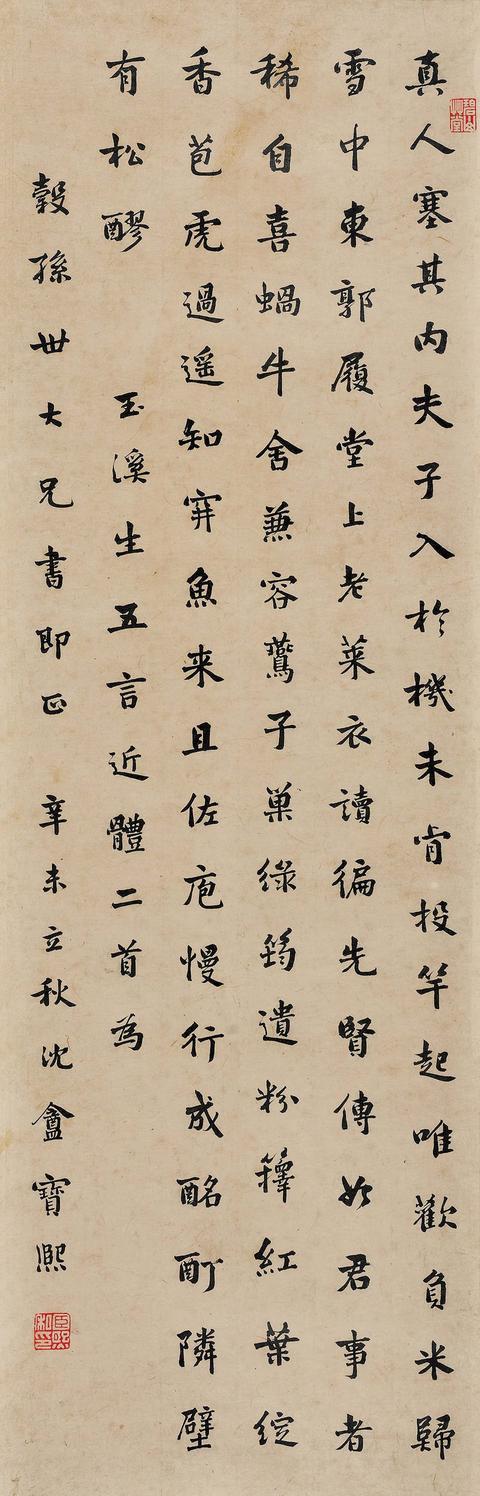 真人塞其内夫子入於機未肯投竿起唯歡負米歸
雪中東郭履堂上老萊衣讀徧先賢傳如君事者
稀自喜蝸牛舍兼容鷰子巢綠筠遺粉籜紅葉綻
香苞虎過遥知穽魚来且佐庖慢行成酩酊隣壁
有松醪 玉溪生五言近體二首為
穀孫世大兄書即正 辛未立秋沈盦寶熙